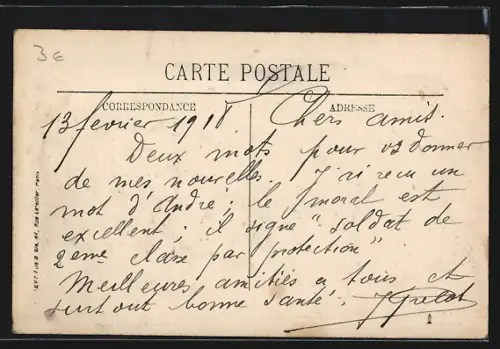 3€
CARTE POSTALE
CORRESPONDANCE
ADRESSE
13 fevrier 1918 Chers amis.
Deux mots pour vs donner
de mes nouvelles. J'ai recu un
mot d'André : le moral est
excellent ; il signe " soldat de
2eme classe par protection".
Meilleures amitiés a tous et
surtout bonne santé.